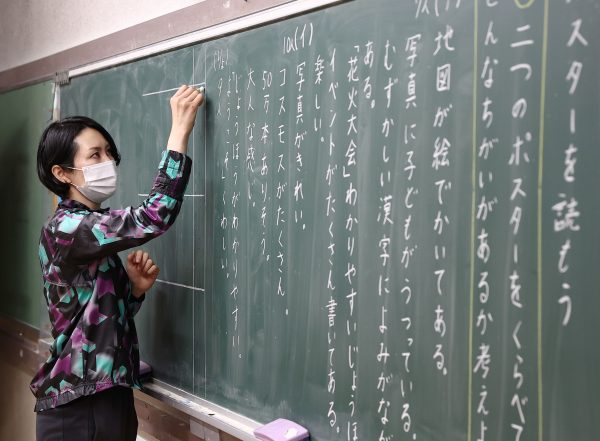 スターを読もう
二つのポスターをくらべて
どんなちがいがあるか考えよ
地図が絵でかいてある。
写真に子どもがうつっている。
むずかしい漢字によみがなが
ある。
「花火大会」わかりやすいじょうほ
イベントがたくさん書いてある。
楽しい。
(イ)
写真がきれい。
コスモスがたくさん。
50万本ありそう。
大人な感じ。
じょうほうがわかりやすい。